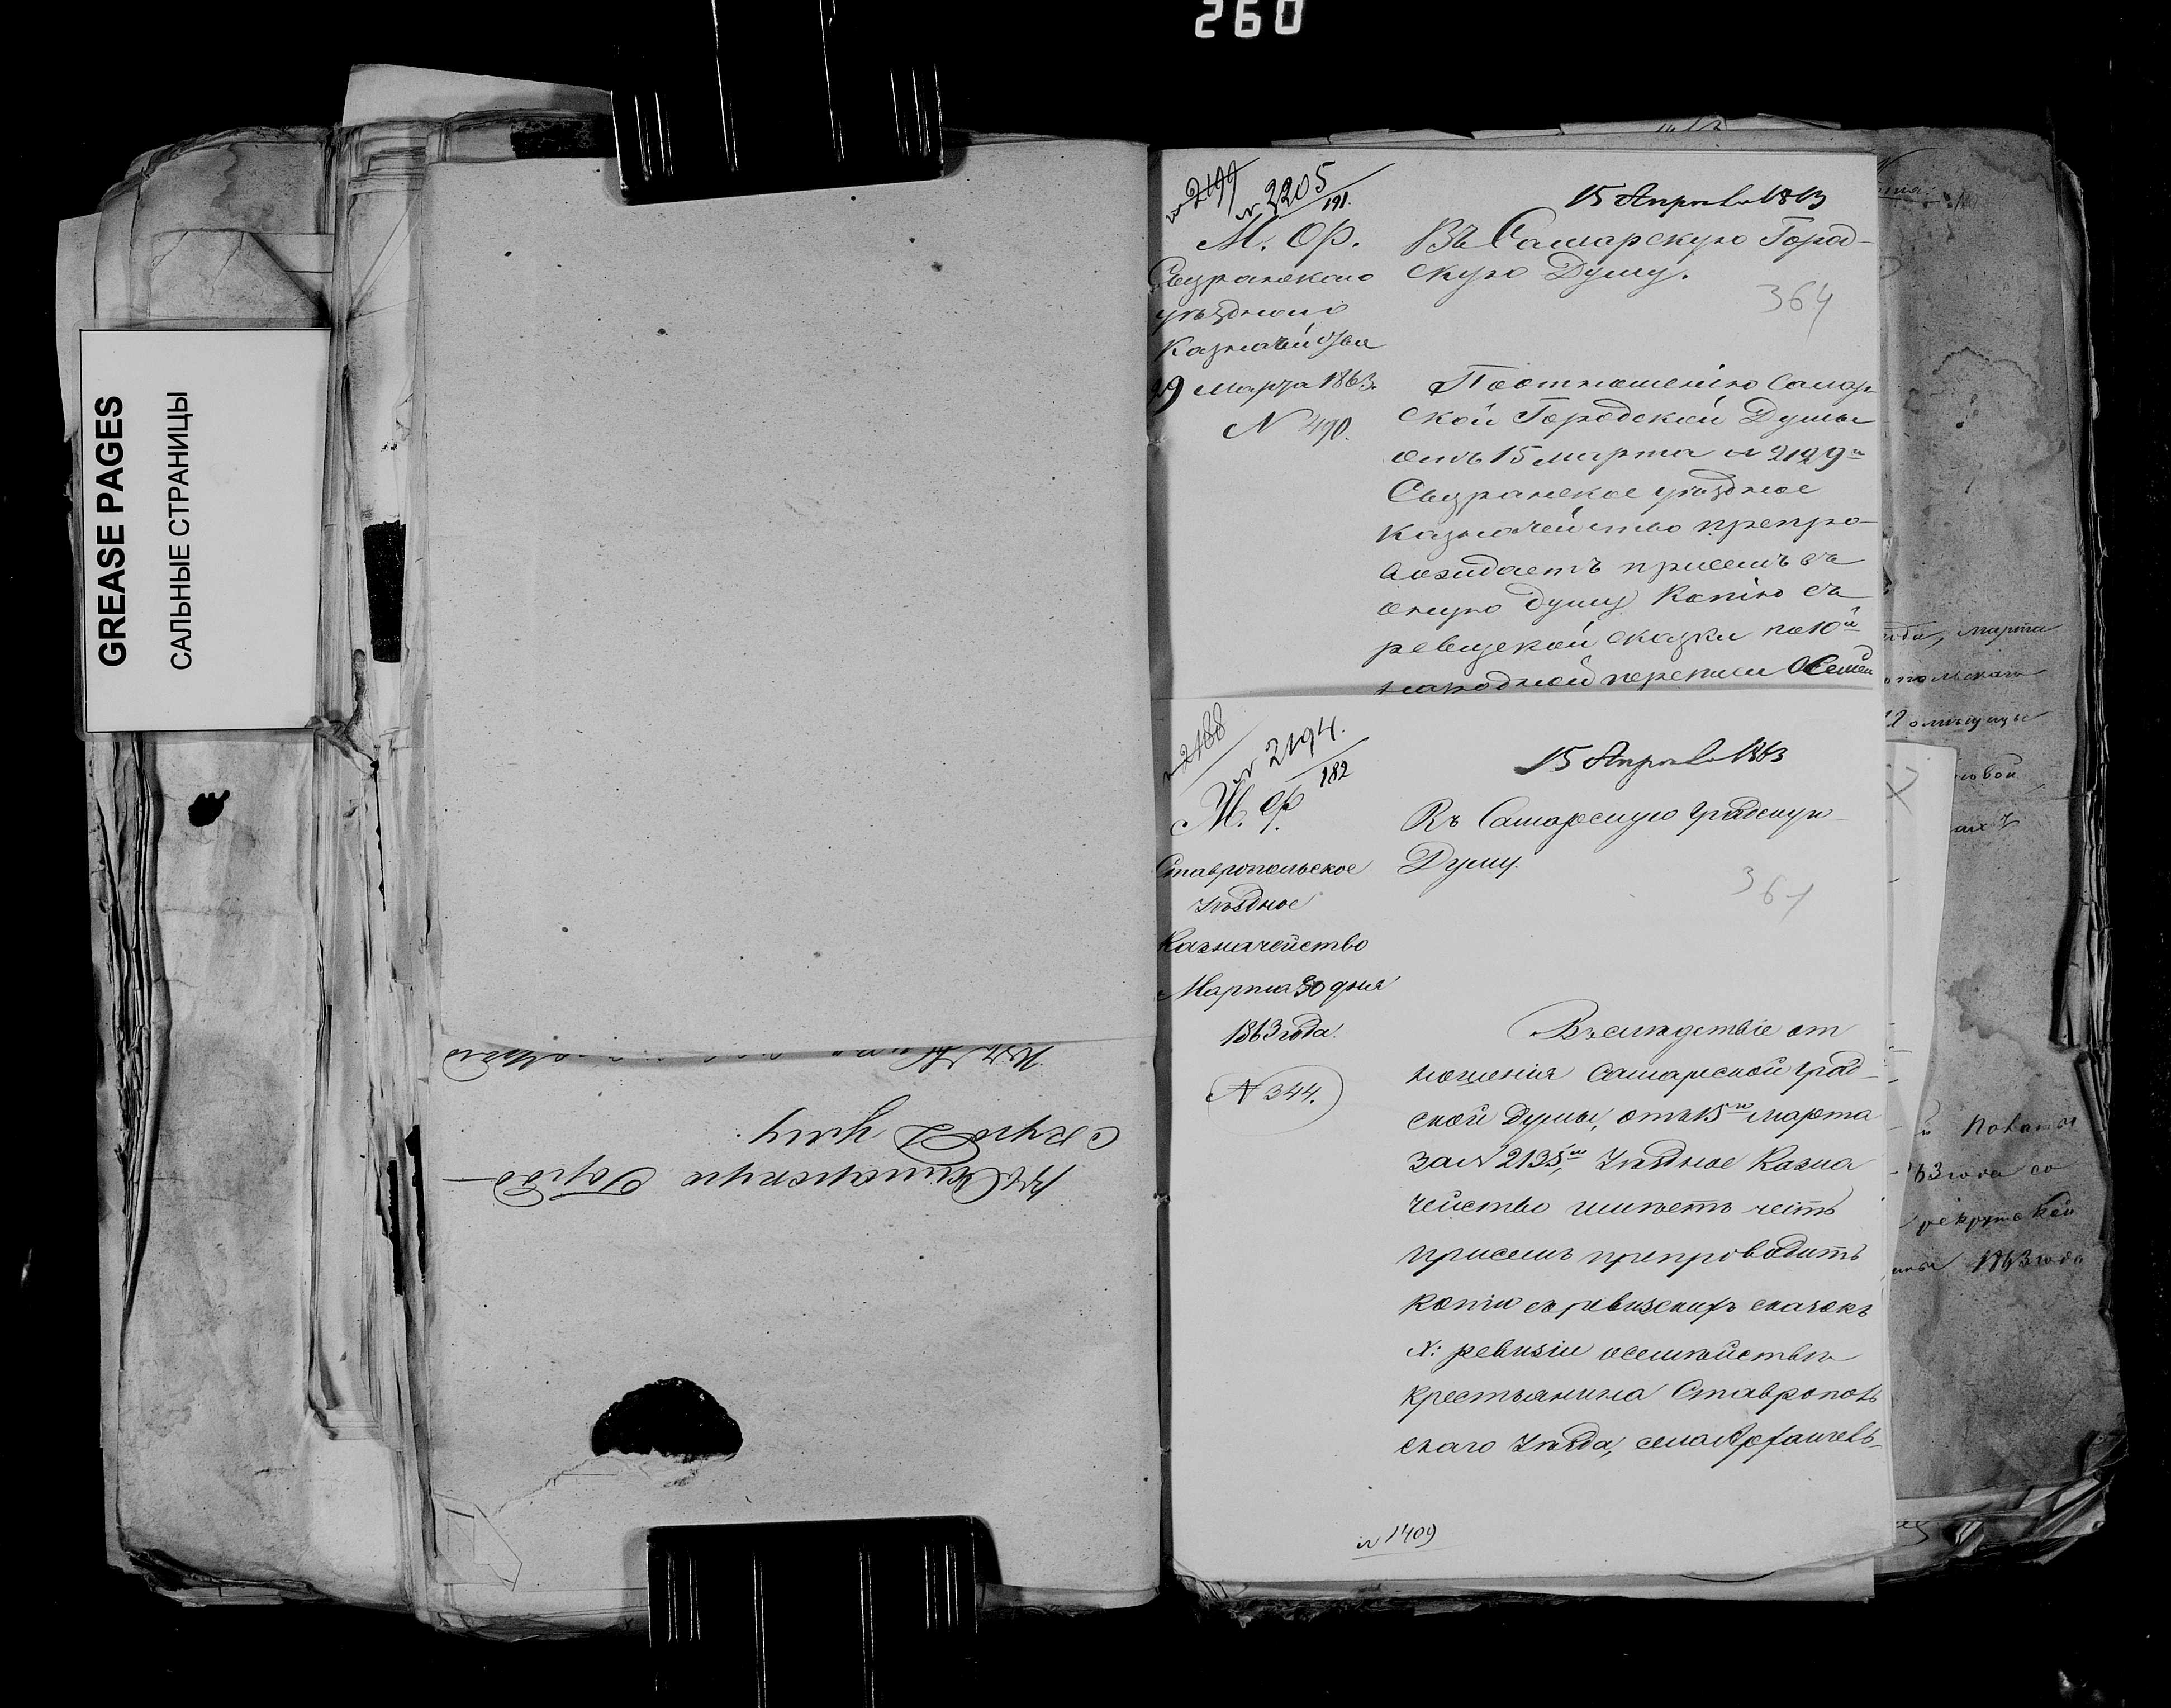 260
GREASE PAGES
САЛЬНЫЕ СТРАНИЦЫ
Въ Самарскую Город-
скую Думу.
№ 2199
№ 2205
191.
15 Апреля 1863
М. Ф.
Сызранскаго
уѣзднаго
Казначейства
29 Марта 1863.
№ 490.
Въ Самарскую Город-
скую Думу.
364
По отношенію Самар
ской Городской Думы
отъ 15 марта № 2129
Сызранское уѣздное
казначейство препро-
вождаетъ присемъ въ
оную думу Копію съ
ревизской сказки по 10й
народной переписи о Семей
№ 2188
№ 2194.
182
15 Апреля 1863
М. Ф.
Ставропольское
Уѣздное
Казначейство
Марта 30 дня
1863 года.
№ 344.
Въ Самарскую Градскую
Думу.
361
Въслѣдствіе от
ношенія Самарской град-
ской Думы, отъ 15го марта
за № 2135м, Уѣздное Казна
чейство имѣетъ честь
присемъ препроводить
копіи съ ревизскихъ сказокъ
X: ревизіи о семѣйствѣ
крестьянина Ставрополь
скаго Уѣзда, села
№ 1409
марта
рекрутской
1863 года